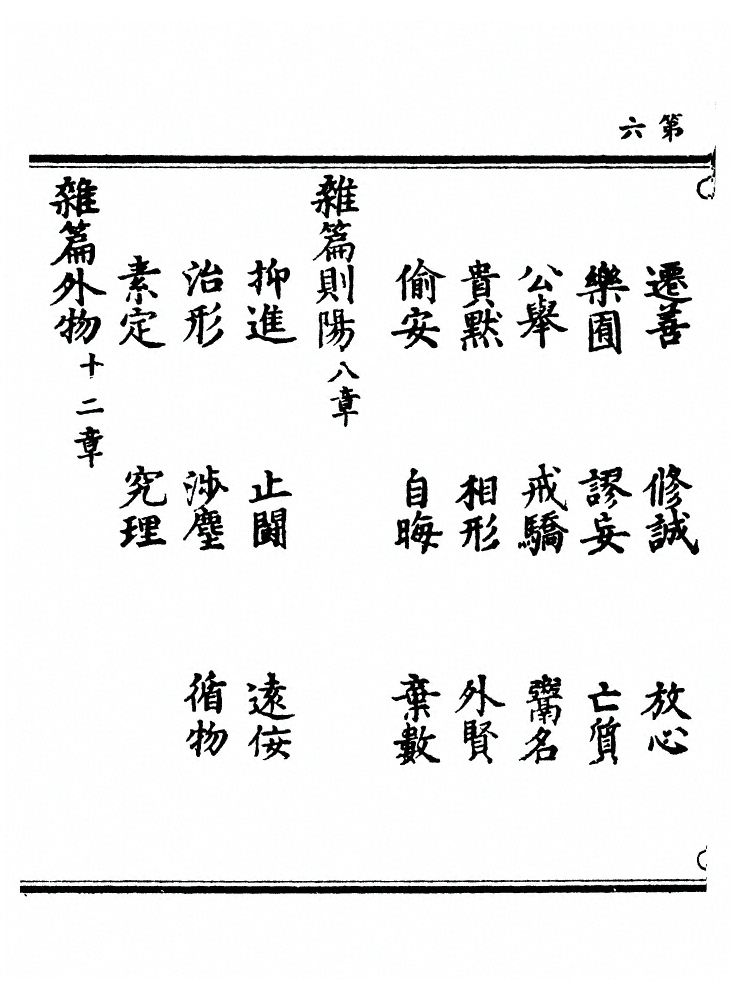 第六
遷善 修誠 放心
樂囿 謬妄 亡質
公舉 戒驕 鬻名
貴默 相形 外賢
偷安 自晦 棄數
雜篇則陽八章
抑進 止鬪 遠佞
治形 涉塵 循物
素定 究理
雜篇外物十二章